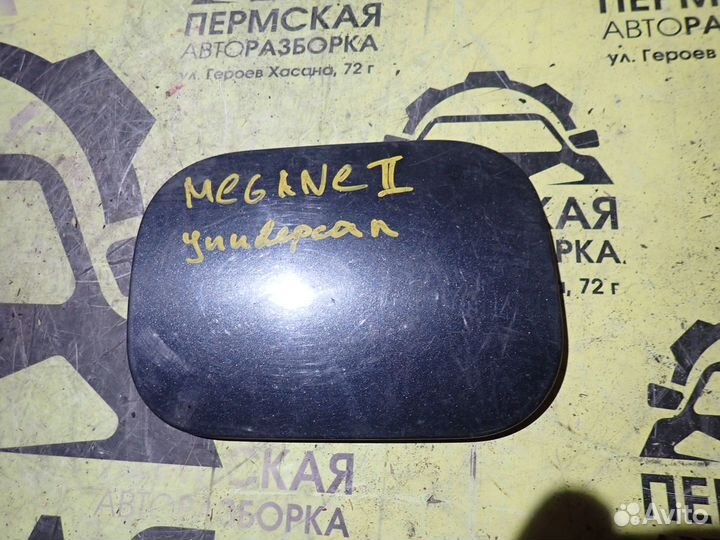 ПЕРМСКАЯ
АВТОРАЗБОРКА
ул. Героев Хасана, 72 г
ПЕРМСКАЯ
АВТОРАЗБ
ул. Героев
MEGANE II
универсал
СКАЯ
РКА
, 72 г
ПЕРМСКАЯ
АВТОРАЗБОРКА
ул. Героев Хасана, 72 г
Avito